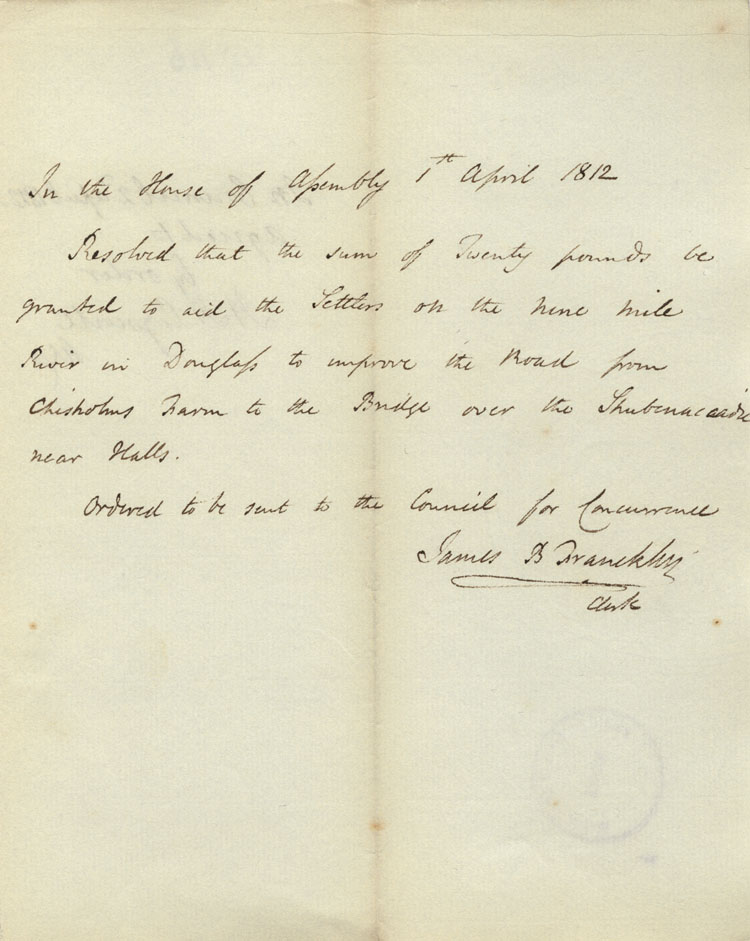 In the House of Assembly 1st April 1812
Resolved that the sum of Twenty pounds be
granted to aid the Settlers on the nine mile
River in Douglass to improve the Road from
Chisholms Farm to the Bridge over the Shubenacaadie
near Halls.
Ordered to be sent to the Council for Concurrence
James B Francklin
Clerk